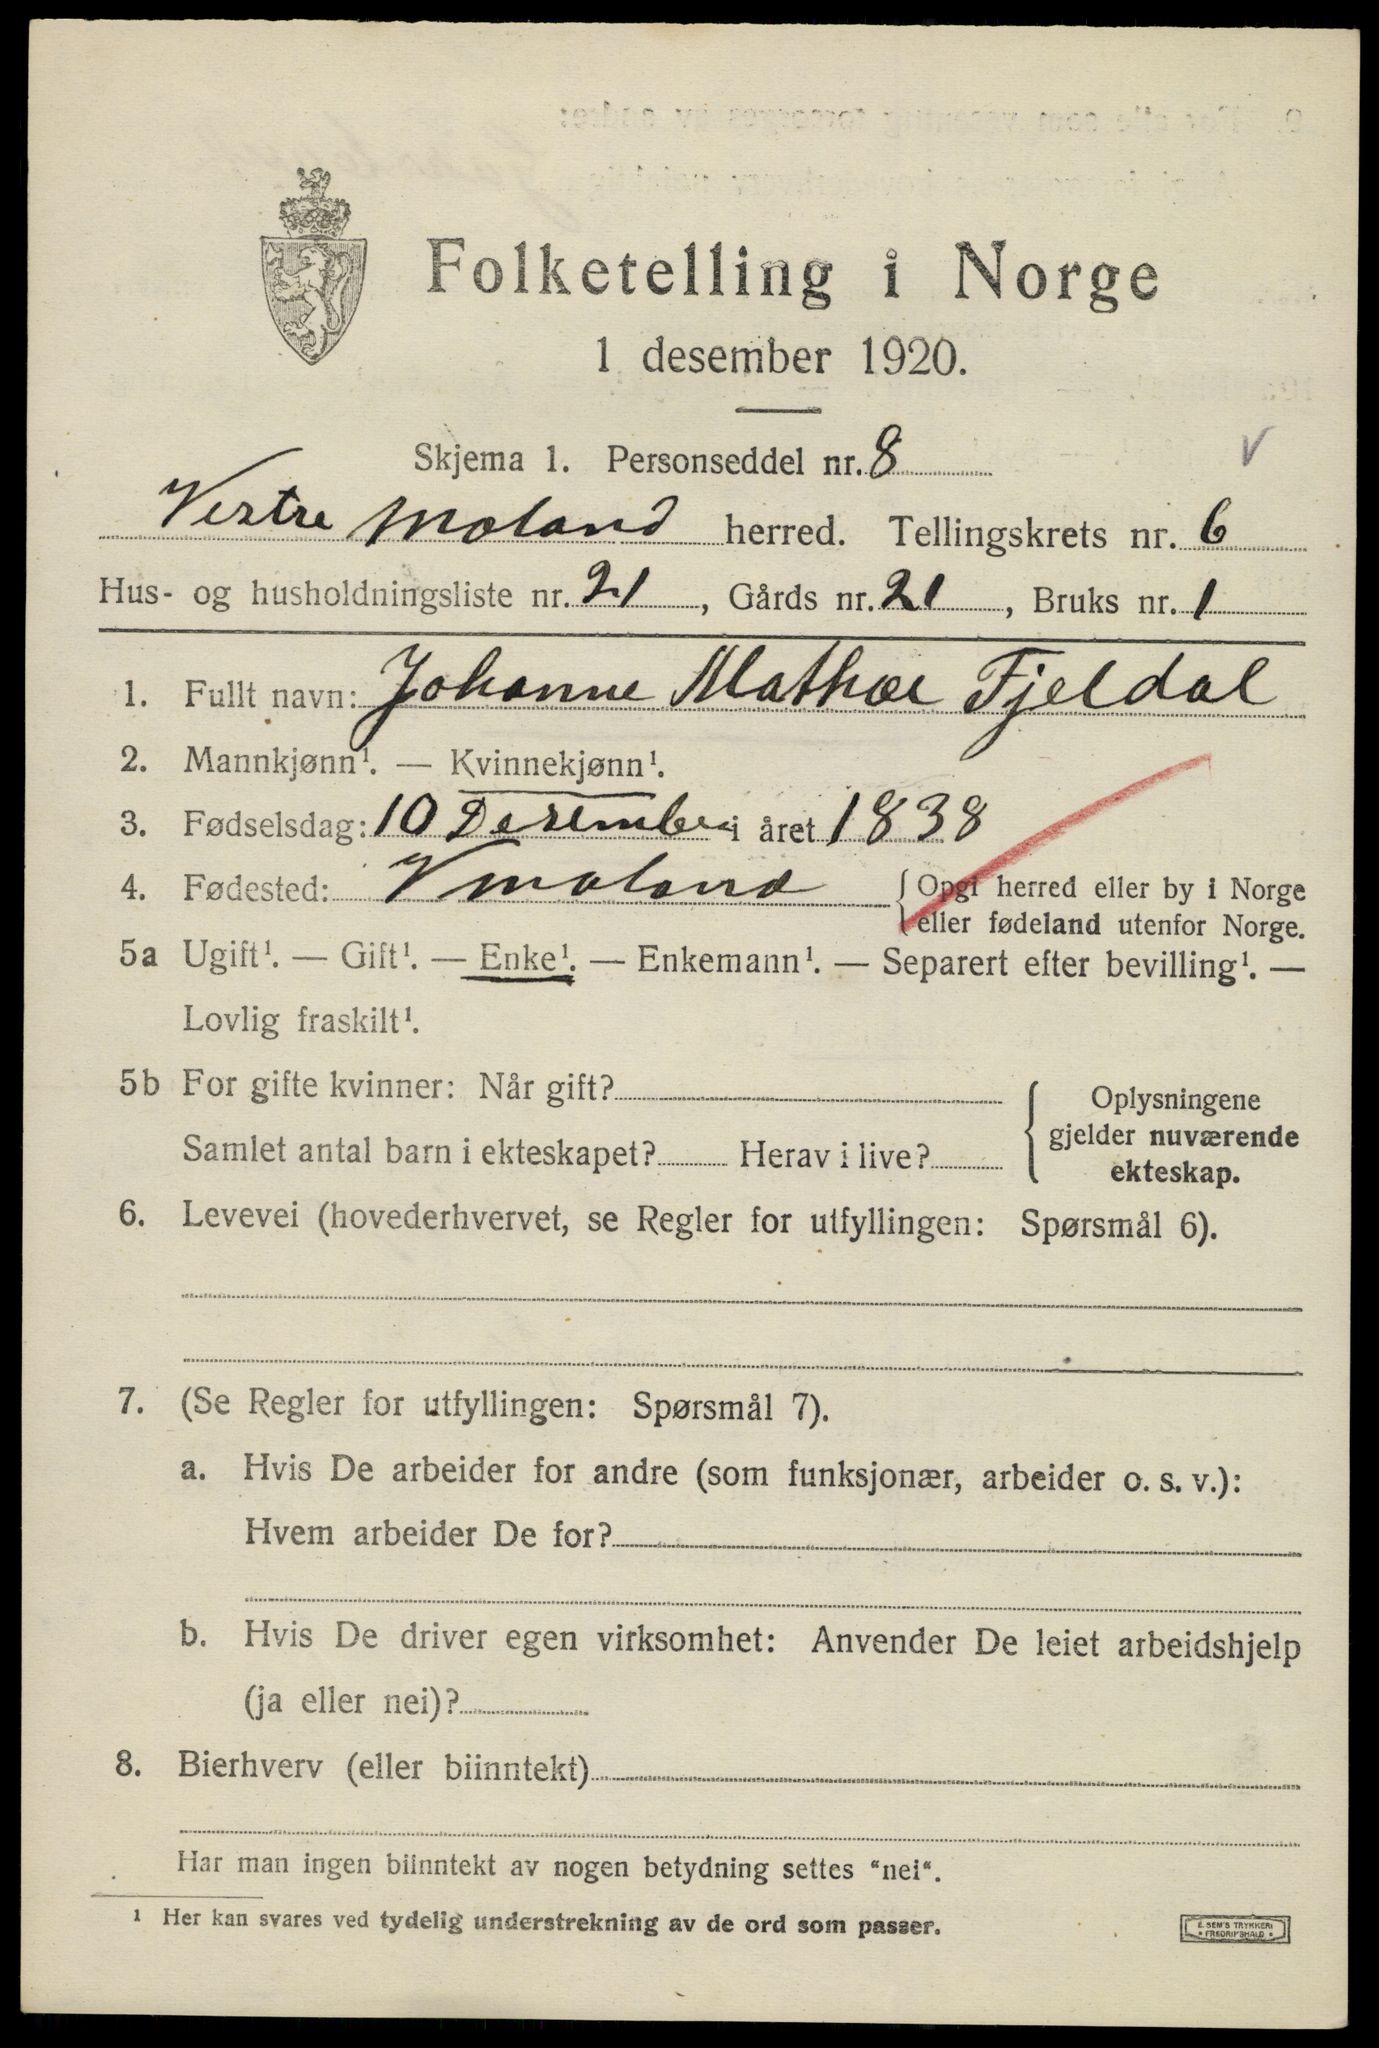 Folketelling i Norge
1 desember 1920.
Skjema 1. Personseddel nr. 8
Vestre Moland herred. Tellingskrets nr. 6
Hus- og husholdningsliste nr. 21, Gårds nr. 21, Bruks nr. 1
1. Fullt navn: Johanne Mathæ Fjeldal
2. Mannkjønn¹. — Kvinnekjønn¹.
3. Fødselsdag: 10 Desember i året 1838
4. Fødested: V moland {Opgi herred eller by i Norge
eller fødeland utenfor Norge.
5a Ugift¹. — Gift¹. — Enke¹. — Enkemann¹. — Separert efter bevilling¹. —
Lovlig fraskilt¹.
5b For gifte kvinner: Når gift?
Samlet antal barn i ekteskapet? Herav i live?
Oplysningene
gjelder nuværende
ekteskap.
6. Levevei (hovederhvervet, se Regler for utfyllingen: Spørsmål 6).
7. (Se Regler for utfyllingen: Spørsmål 7).
a. Hvis De arbeider for andre (som funksjonær, arbeider o. s. v.):
Hvem arbeider De for?
b. Hvis De driver egen virksomhet: Anvender De leiet arbeidshjelp
(ja eller nei)?
8. Bierhverv (eller biinntekt)
Har man ingen biinntekt av nogen betydning settes "nei".
¹ Her kan svares ved tydelig understrekning av de ord som passer.
E. SEM'S TRYKKERI
FREDRIKSHALD